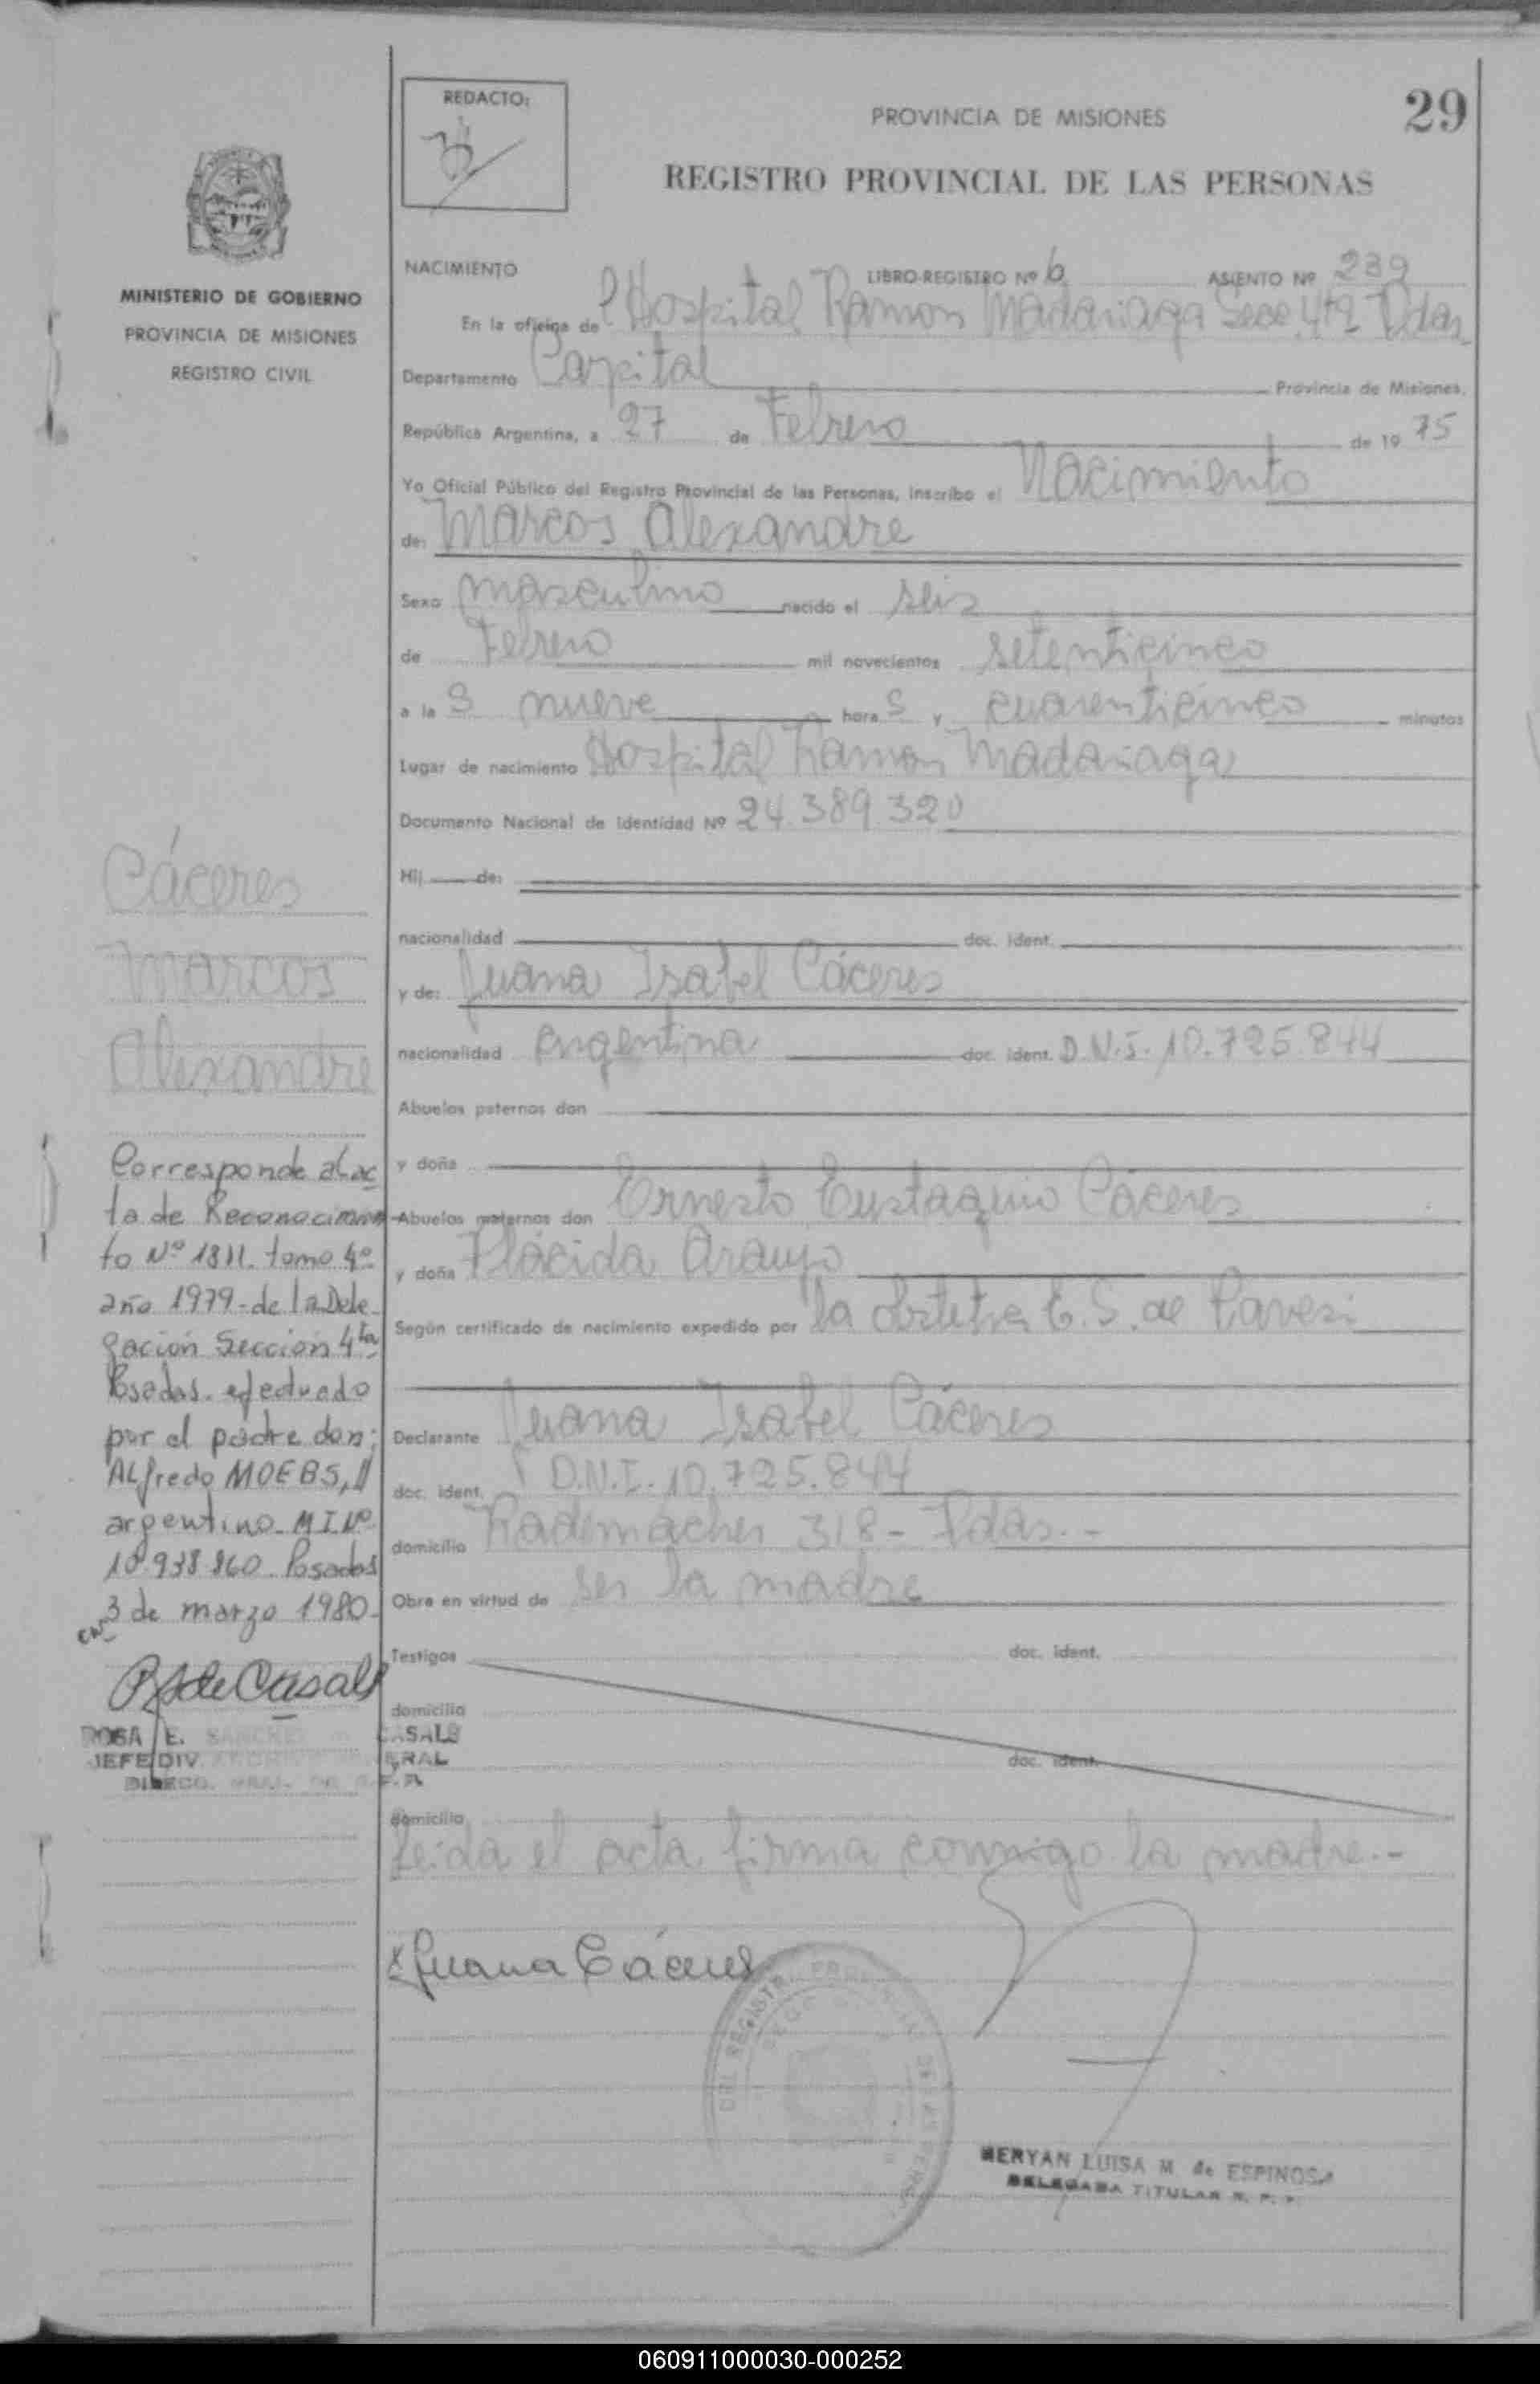 REDACTO:
PROVINCIA DE MISIONES
29
REGISTRO PROVINCIAL DE LAS PERSONAS
MINISTERIO DE GOBIERNO
PROVINCIA DE MISIONES
REGISTRO CIVIL
NACIMIENTO LIBRO-REGISTRO Nº 6 ASIENTO Nº 239
En la oficina del Hospital Ramon Madariaga Secc. 4ta Pdas
Departamento Capital Provincia de Misiones.
República Argentina, a 27 de Febrero de 19 75
Yo Oficial Público del Registro Provincial de las Personas, inscribo el Nacimiento
de: Marcos Alexandre
Sexo masculino nacido el seis
de Febrero mil novecientos setenticinco
a la s nueve hora s y cuarenticinco minutos
Lugar de nacimiento Hospital Ramon Madariaga
Documento Nacional de Identidad Nº 24.389.320
Hij de:
nacionalidad doc. ident.
y de: Juana Isabel Cáceres
nacionalidad Argentina doc. ident. D.N.I. 10.725.844
Abuelos paternos don
y doña
Abuelos maternos don Ernesto Eustaquio Cáceres
y doña Plácida Araujo
Según certificado de nacimiento expedido por la obstetra E. S. de Pavesi
Declarante Juana Isabel Cáceres
doc. ident. D.N.I. 10.725.844
domicilio Rademacher 318 - Pdas.-
Obra en virtud de ser la madre
Testigos doc. ident.
domicilio
doc. ident.
domicilio
Leida el acta firma conmigo la madre.-
x Juana Cáceres
DEL REGISTRO
MERYAN LUISA M. de ESPINOSA
DELEGADA TITULAR R. P. P.
Cáceres
Marcos
Alexandre
Corresponde al ac
ta de Reconocimien
to Nº 1311. tomo 4º
año 1979 - de la Dele
gación Sección 4ta
Posadas. efectuado
por el padre don:
Alfredo MOEBS, //
argentino MI Nº
10.938.860. Posadas
3 de marzo 1980.
R S de Casals
ROSA E. SANCHEZ CASALS
JEFE DIV.
060911000030-000252